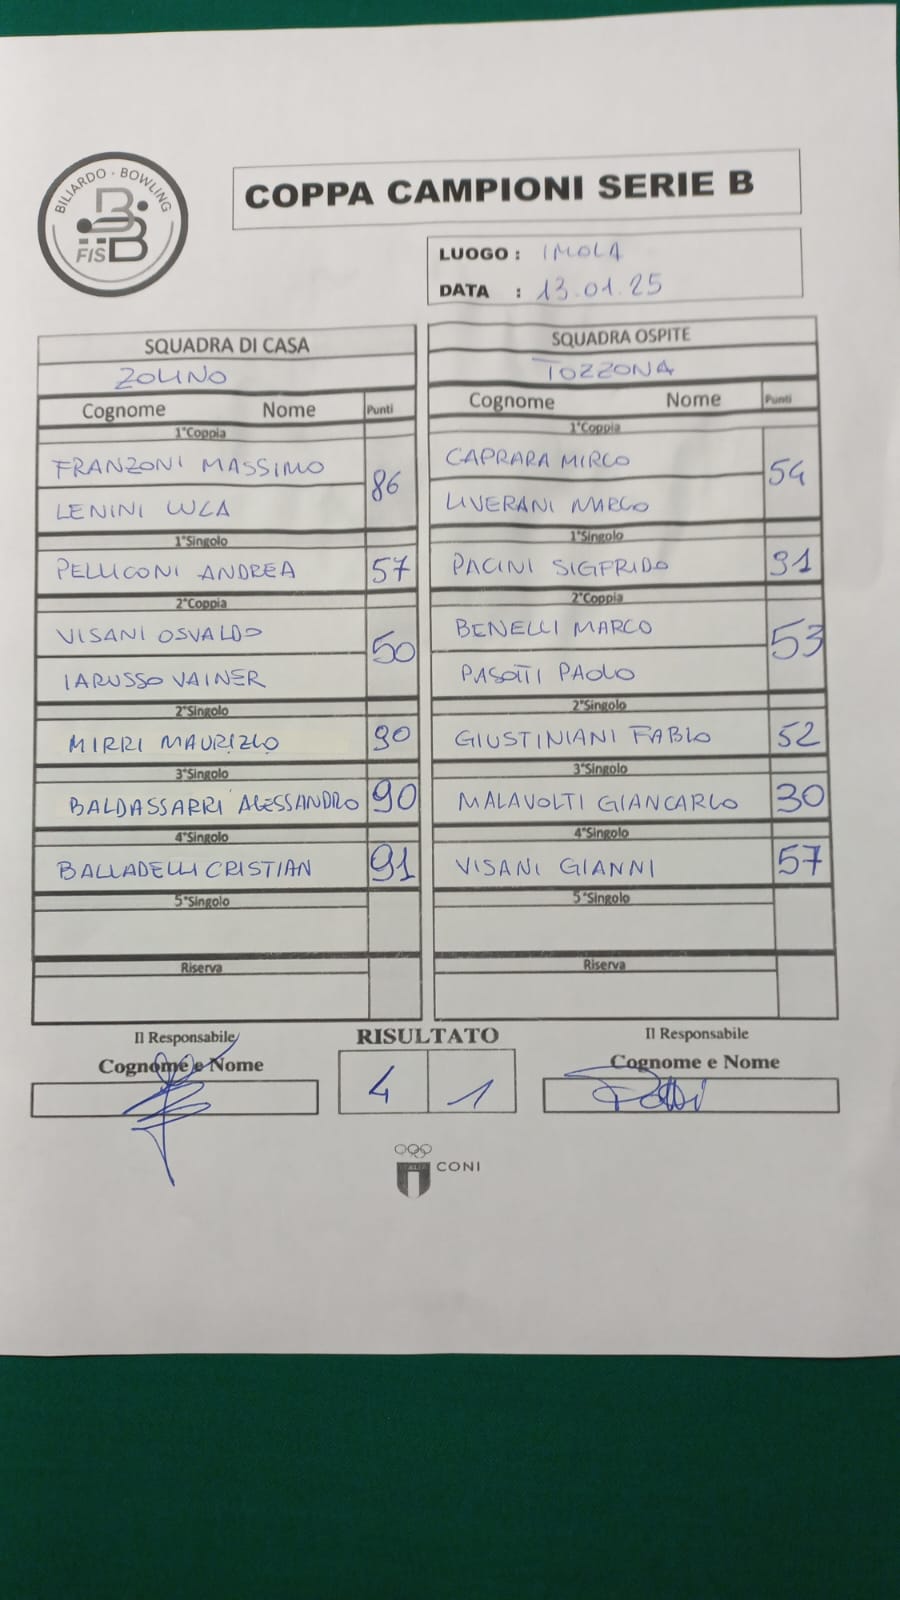 BILIARDO - BOWLING
FISBB
COPPA CAMPIONI SERIE B
LUOGO : IMOLA
DATA : 13.01.25
SQUADRA DI CASA
ZOLINO
Cognome Nome Punti
1°Coppia
FRANZONI MASSIMO
86
LENINI LUCA
1°Singolo
PELLICONI ANDREA 57
2°Coppia
VISANI OSVALDO
50
IARUSSO VAINER
2°Singolo
MIRRI MAURIZIO 90
3°Singolo
BALDASSARRI ALESSANDRO 90
4°Singolo
BALLADELLI CRISTIAN 91
5°Singolo
Riserva
SQUADRA OSPITE
TOZZONA
Cognome Nome Punti
1°Coppia
CAPRARA MIRCO
54
LIVERANI MARCO
1°Singolo
PACINI SIGFRIDO 91
2°Coppia
BENELLI MARCO
53
PASOTTI PAOLO
2°Singolo
GIUSTINIANI FABIO 52
3°Singolo
MALAVOLTI GIANCARLO 30
4°Singolo
VISANI GIANNI 57
5°Singolo
Riserva
Il Responsabile
Cognome e Nome
RISULTATO
4 1
Il Responsabile
Cognome e Nome
ITALIA
CONI